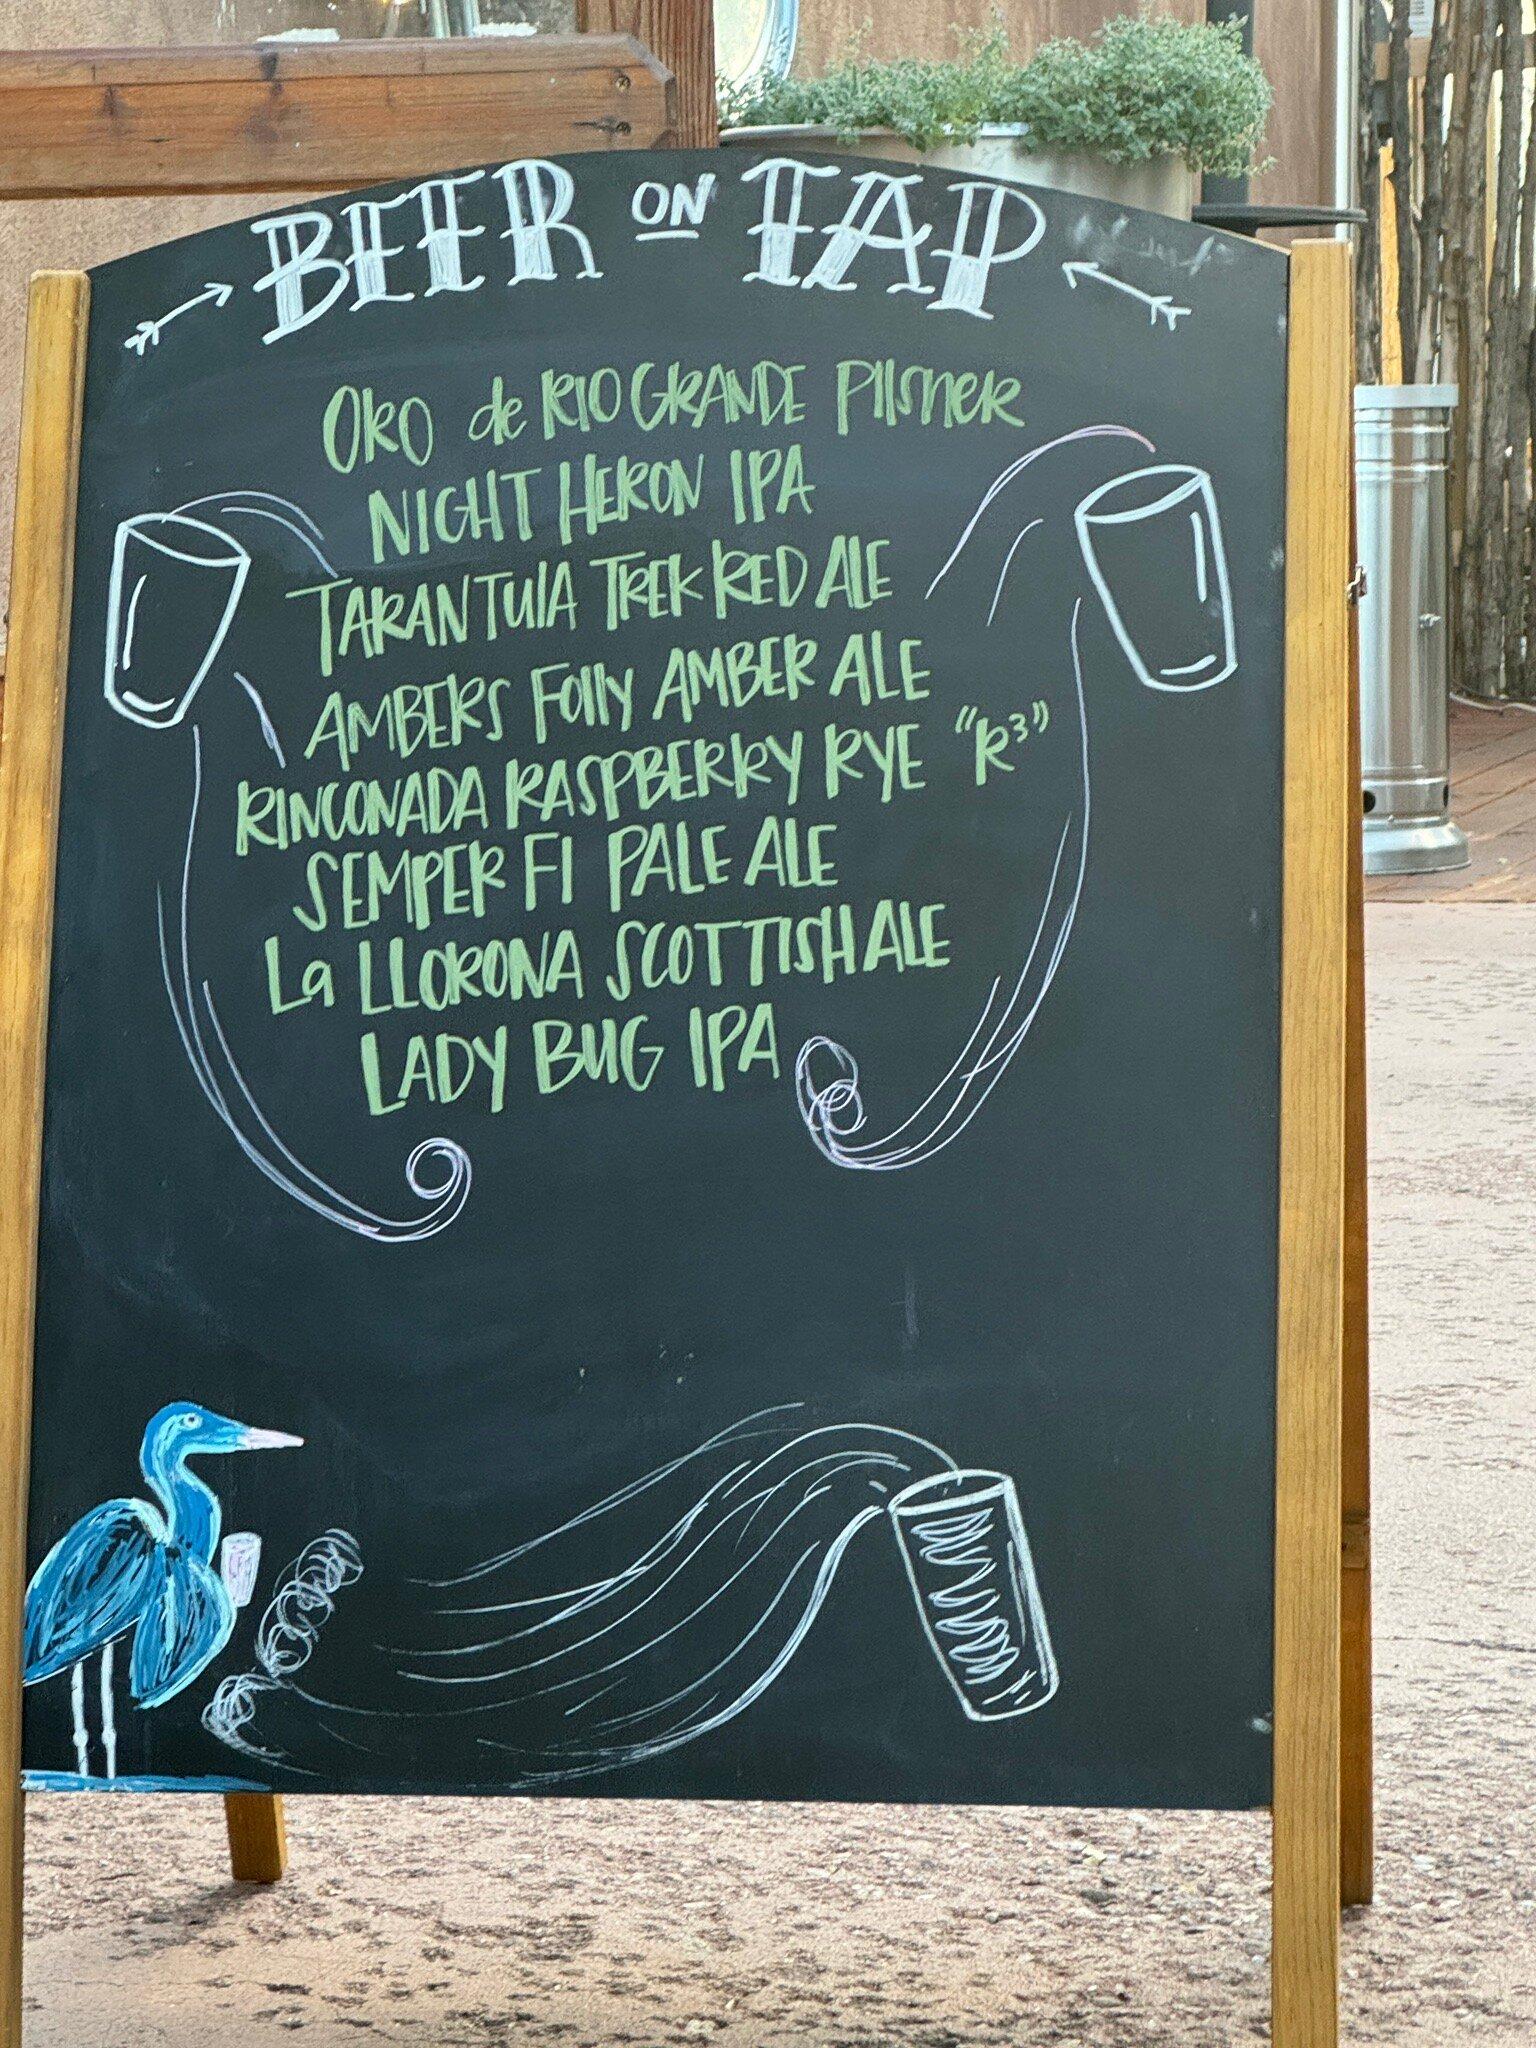 BEER ON TAP
ORO de RIO GRANDE PILSNER
NIGHT HERON IPA
TARANTULA TREK RED ALE
AMBERS FOLLY AMBER ALE
RINCONADA RASPBERRY RYE "R³"
SEMPER FI PALE ALE
La LLORONA SCOTTISH ALE
LADY BUG IPA